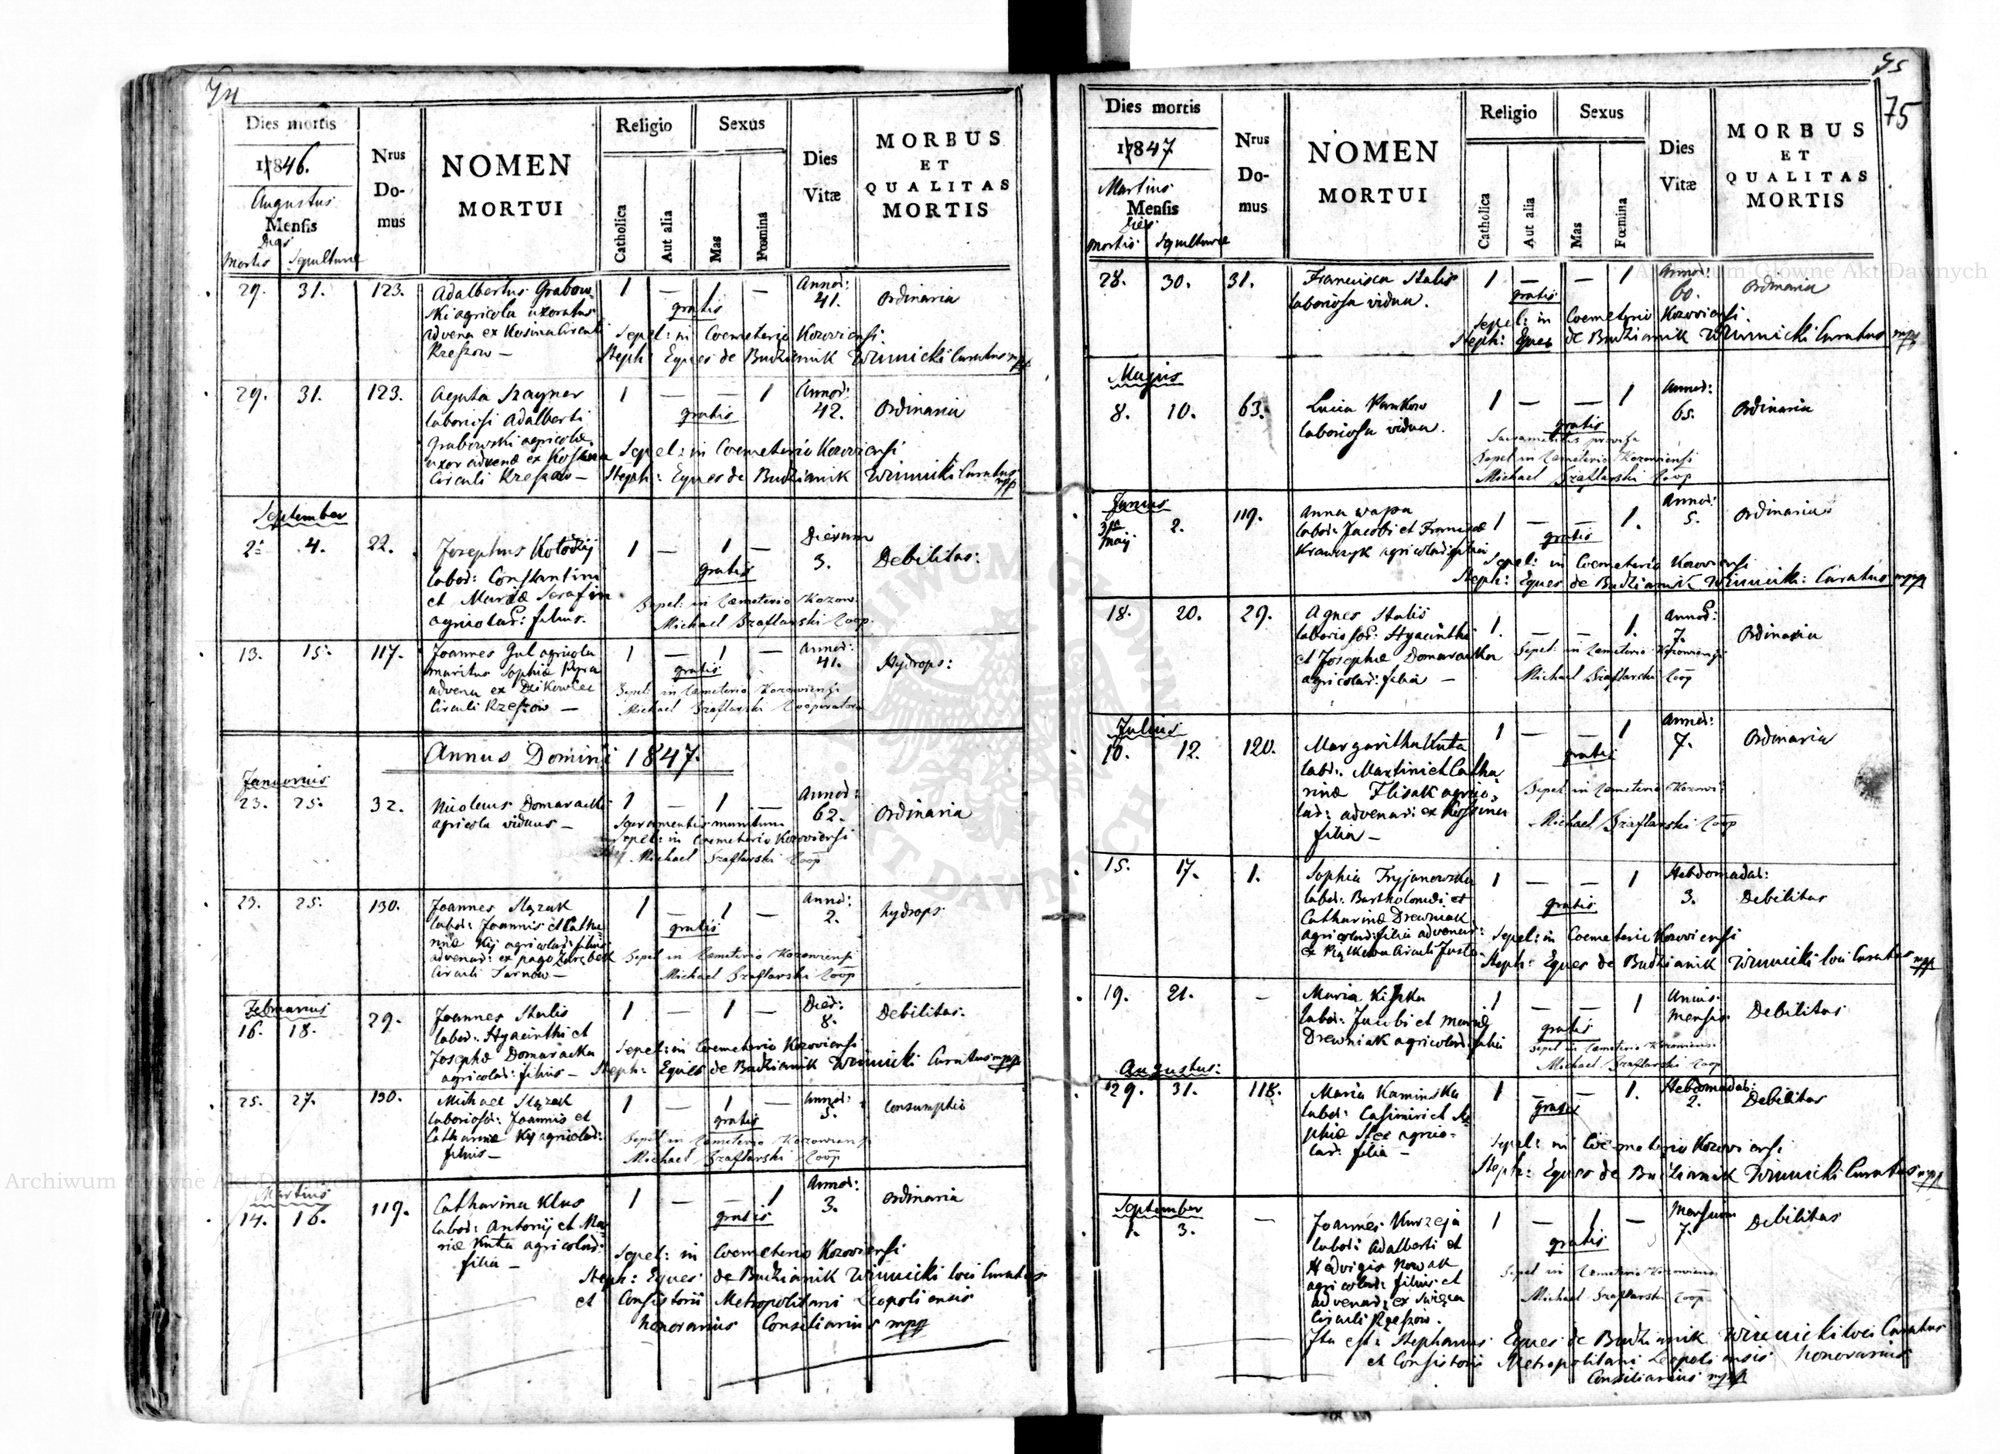 74
Dies mortis
Nrus
Do-
mus
NOMEN
MORTUI
Religio
Sexus
Catholica
Aut alia
Mas
Fœmina
Dies
Vitæ
MORBUS
ET
QUALITAS
MORTIS
1846.
Augustus
Mensis
Dies
Mortis Sepulturæ
29. 31. 123. Adalbertus Grabow- 1 — 1 — Annor: 41. Ordinaria
ski agricola uxoratus gratis
advena ex Kosina Circuli Sepel: in Coemeterio Kozoviensi.
Rzeszow — Steph: Eques de Budzianik Winnicki Curatus mpp
29. 31. 123. Agata Szayner 1 — — 1 Annor: 42. Ordinaria
laboriosi Adalberti gratis
Grabowski agricolæ
uxor advenæ ex Kosina Sepel: in Coemeterio Kozoviensi
Circuli Rzeszow — Steph: Eques de Budzianik Winnicki Curatus mpp
September
2. 4. 22. Josephus Kołodzij 1 — 1 — Dierum 3. Debilitas:
labor: Constantini gratis
et Mariæ Serafin Sepel: in Cæmeterio Kozow:
agricolar: filius. Michael Szaflarski Coop.
13. 15. 117. Joannes Gul agricola 1 — 1 — Annor: 41. Hydrops:
maritus Sophiæ Pyra gratis
advena ex Dzikowiec Sepel: in Cæmeterio Kozowiensi
Circuli Rzeszow — Michael Szaflarski Cooperator
Annus Domini 1847.
Januarius
23. 25. 32. Nicolaus Domaracki 1 — 1 — Annor: 62. Ordinaria
agricola viduus — Sacramentis munitum
Sepel: in Coemeterio Kozoviensi
Michael Szaflarski Coop
23. 25. 130. Joannes Slązak 1 — 1 — Annor: 2. hydrops
labor: Joannis et Catha- gratis
rinæ Kij agricolar: filius
advenar: ex pago Zarębek Sepel in Cæmeterio Kozowiensi
Circuli Tarnow — Michael Szaflarski Coop
Februarius
16. 18. 29. Joannes Stalis 1 — 1 — Dier: 8. Debilitas.
labor: Hyacinthi et
Josephæ Domaracka Sepel: in Coemeterio Kozoviensi
agricolar: filius — Steph: Eques de Budzianik Winnicki Curatus mpp
25. 27. 130. Michael Slązak 1 — 1 — Annor: 5. Consumptio
laborios: Joannis et gratis
Catharinæ Kij agricolar: Sepel in Cæmeterio Kozowiensi
filius — Michael Szaflarski Coop
Martius
14. 16. 119. Catharina Klus 1 — — 1 Annor: 3. Ordinaria
labor: Antonij et Ma- gratis
riæ Kuta agricolar:
filia — Sepel: in Coemeterio Kozoviensi
Steph: Eques de Budzianik Winnicki loci Curatus
et Consistorii Metropolitani Leopoliensis
honorarius Consiliarius mpp
75
75
Dies mortis
Nrus
Do-
mus
NOMEN
MORTUI
Religio
Sexus
Catholica
Aut alia
Mas
Fœmina
Dies
Vitæ
MORBUS
ET
QUALITAS
MORTIS
1847
Martius
Mensis
Dies
Mortis Sepulturæ
28. 30. 31. Francisca Stalis 1 — — 1 Annor: 60. Ordinaria
laboriosa vidua. gratis
Sepel: in Coemeterio Kozoviensi.
Steph: Eques de Budzianik Winnicki Curatus mpp
Majus
8. 10. 63. Lucia Pankow 1 — — 1 Annor: 65. Ordinaria
laboriosa vidua. gratis
Sacramentis provisa
Sepel in Cæmeterio Kozowiensi
Michael Szaflarski Coop
Junius
31a Maij 2. 119. Anna Wapa 1 — — 1. Annor: 5. Ordinarius
labor: Jacobi et Franciscæ gratis
Krawczyk agricolar: filia
Sepel: in Coemeterio Kozoviensi
Steph: Eques de Budzianik Winnicki: Curatus mpp
18. 20. 29. Agnes Stalis 1. — — 1. Annor: 7. Ordinaria
laboriosor: Hyacinthi
et Josephæ Domaracka Sepel: in Cæmeterio Kozowiensi
agricolar: filia — Michael Szaflarski Coop
Julius
10. 12. 120. Margaritha Kuta 1 — — 1 Annor: 7. Ordinaria
labor: Martini et Catha- gratis
rinæ Flisak agrico-
lar: advenari ex Kossina Sepel in Cæmeterio Kozowi:
filia — Michael Szaflarski Coop
15. 17. 1. Sophia Tryjanowska 1 — — 1 Hebdomadar: 3. Debilitas
labor: Bartholomei et
Catharinæ Drewniak gratis
agricolar: filia advenar:
ex Piątkowa Circuli Jaslo — Sepel: in Coemeterio Kozoviensi
Steph: Eques de Budzianik Winnicki loci Curatus mpp
19. 21. — Maria Kiszka 1 — — 1 Unius Mensis Debilitas
labor: Jacobi et Mariæ gratis
Drewniak agricolar: filia Sepel in Cæmeterio Kozowiensi
Michael Szaflarski Coop
Augustus:
29. 31. 118. Maria Kaminska 1 — — 1. Hebdomadar: 2. Debilitas
labor: Casimiri et So- gratis
phiæ Stec agrico-
lar: filia — Sepel: in Coemeterio Kozoviensi
Steph: Eques de Budzianik Winnicki Curatus mpp
September
1. 3. — Joannes Kurzeja 1 — 1 — Mensium 7. Debilitas
labor: Adalberti et gratis
Hedvigis Nowak
agricolar: filius et Sepel in Cæmeterio Kozowiensi
advenar: ex Swięca Michael Szaflarski Coop
Circuli Rzeszow.
Ita est: Stephanus Eques de Budzianik Winnicki loci Curatus
et Consistorii Metropolitani Leopoliensis honorarius
Consiliarius mpp
Archiwum Główne Akt Dawnych
Archiwum Główne Akt Dawnych
ARCHIWUM GŁÓWNE AKT DAWNYCH